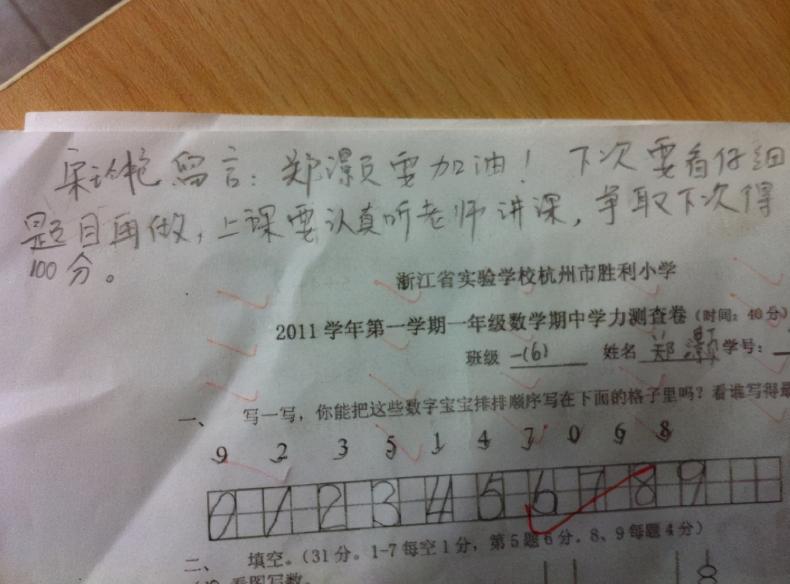 留言：郑灏员要加油！下次要看仔细
题目再做，上课要认真听老师讲课，争取下次得
100分。
浙江省实验学校杭州市胜利小学
2011学年第一学期一年级数学期中学力测查卷（时间：40分）
班级 一(6) 姓名 郑灏 学号：
一、 写一写，你能把这些数字宝宝排排顺序写在下面的格子里吗？看谁写得最
9 2 3 5 1 4 7 0 6 8
0 1 2 3 4 5 6 7 8 9
二、 填空。（31分。1-7每空1分，第5题6分．8、9每题4分）
看图写数。
8